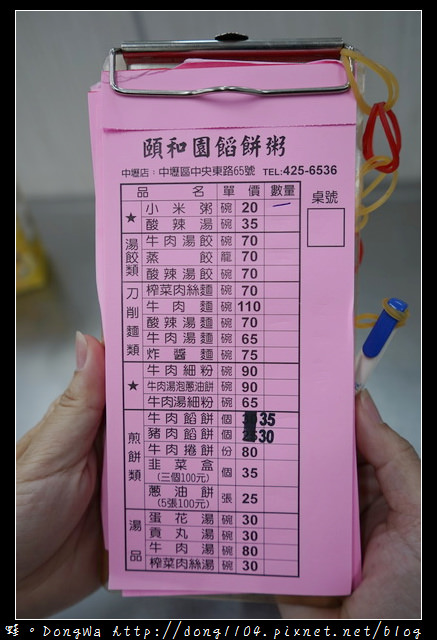 頤和園餡餅粥
中壢店：中壢區中央東路65號 TEL:425-6536
品名 單價 數量 桌號
★ 小米粥 碗 20
酸辣湯 碗 35
湯餃類 牛肉湯餃 碗 70
蒸餃 籠 70
酸辣湯餃 碗 70
刀削麵類 榨菜肉絲麵 碗 70
牛肉麵 碗 110
酸辣湯麵 碗 70
牛肉湯麵 碗 65
炸醬麵 碗 75
★ 牛肉細粉 碗 90
牛肉湯泡蔥油餅 碗 90
牛肉湯細粉 碗 65
煎餅類 牛肉餡餅 個 35
豬肉餡餅 個 30
牛肉捲餅 份 80
韭菜盒 個 35
(三個100元)
蔥油餅 張 25
(5張100元)
湯品 蛋花湯 碗 30
貢丸湯 碗 30
牛肉湯 碗 80
榨菜肉絲湯 碗 30
蛙。DongWa Http://dong1104.pixnet.net/blog